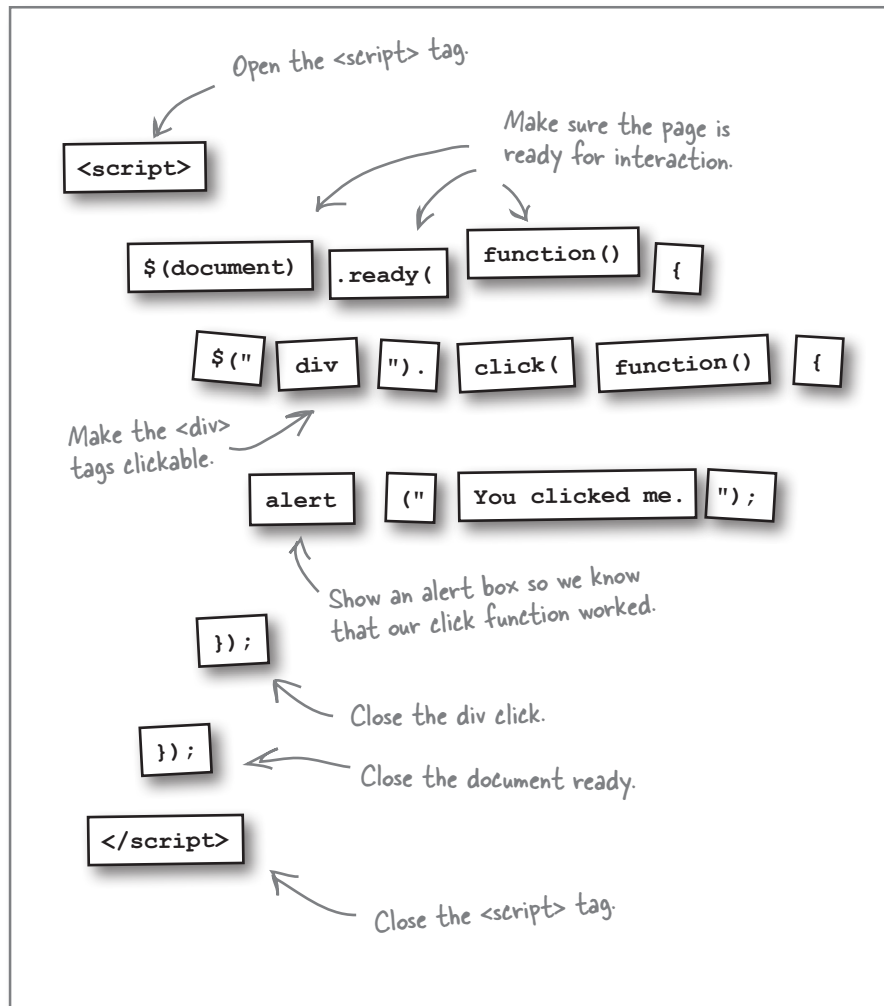 Open the <script> tag.
<script>
Make sure the page is
ready for interaction.
$(document) .ready( function() {
$(" div "). click( function() {
Make the <div>
tags clickable.
alert (" You clicked me. ");
Show an alert box so we know
that our click function worked.
});
Close the div click.
});
Close the document ready.
</script>
Close the <script> tag.